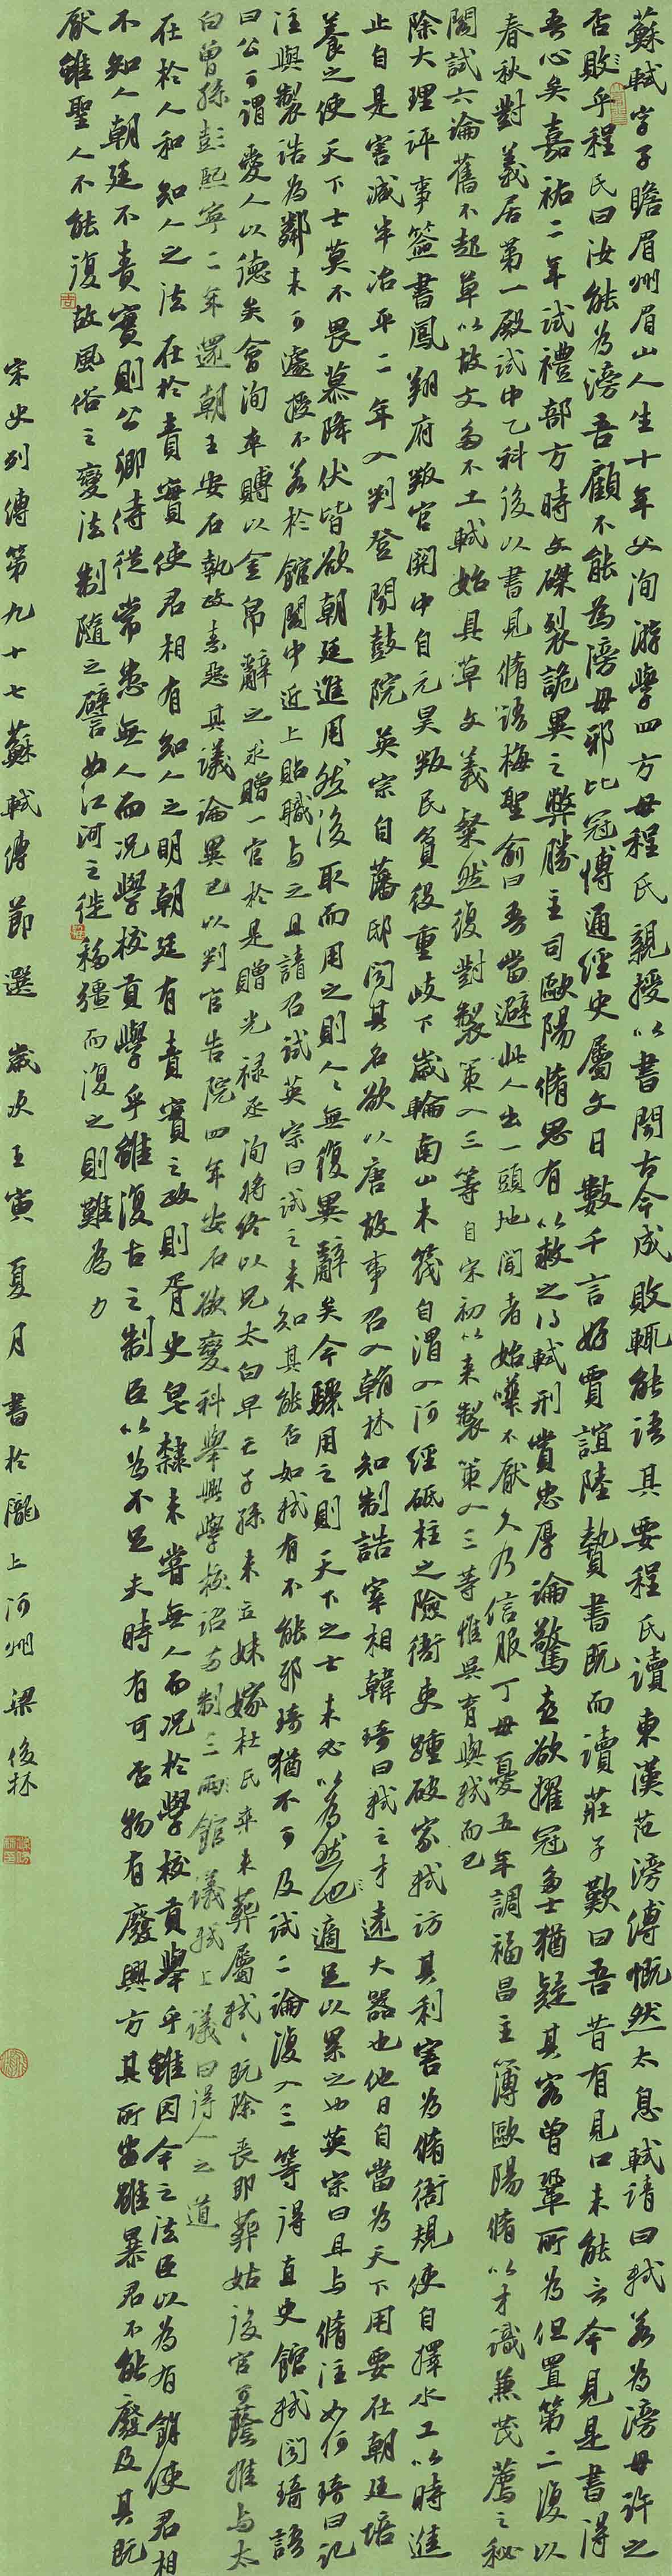 蘇軾字子瞻眉州眉山人生十年父洵游學四方母程氏親授以書聞古今成敗輒能語其要程氏讀東漢范滂傳慨然太息軾請曰軾若為滂母許之
否敗乎程氏曰汝能為滂吾顧不能為滂母邪比冠博通經史屬文日數千言好賈誼陸贄書既而讀莊子歎曰吾昔有見口未能言今見是書得
吾心矣嘉祐二年試禮部方時文磔裂詭異之弊勝主司歐陽脩思有以救之得軾刑賞忠厚論驚喜欲擢冠多士猶疑其客曾鞏所為但置第二復以
春秋對義居第一殿試中乙科後以書見脩語梅聖俞曰吾當避此人出一頭地聞者始嘩不厭久乃信服丁母憂五年調福昌主簿歐陽脩以才識兼茂薦之秘
閣試六論舊不起草以故文多不工軾始具草文義粲然復對製策入三等自宋初以來製策入三等惟吳育與軾而已
除大理評事簽書鳳翔府判官關中自元昊叛民貧役重岐下歲輸南山木筏自渭入河經砥柱之險衙吏踵破家軾訪其利害為脩衙規使自擇水工以時進
止自是害減半治平二年入判登聞鼓院英宗自藩邸聞其名欲以唐故事召入翰林知制誥宰相韓琦曰軾之才遠大器也他日自當為天下用要在朝廷培
養之使天下士莫不畏慕降伏皆欲朝廷進用然後取而用之則人人無復異辭矣今驟用之則天下之士未必以為然他適足以累之也英宗曰且与脩注如何琦曰記
注與製誥為鄰未可遽授不若於館閣中近上貼職与之且請召試英宗曰試之未知其能否如軾有不能邪琦猶不可及試二論復入三等得直史館軾聞琦語
曰公可謂愛人以德矣會洵卒賻以金帛辭之求贈一官於是贈光祿丞洵將終以兄太白早亡子孫未立妹嫁杜氏卒未葬屬軾軾既除喪即葬姑後官可蔭推与太
白曾孫彭熙寧二年還朝王安石執政素惡其議論異己以判官告院四年安石欲變科舉興學校詔兩制三館議軾上議曰得人之道
在於人和知人之法在於責實使君相有知人之明朝廷有責實之政則胥史皂隸未嘗無人而況於學校貢舉乎雖因今之法臣以為有餘使君相
不知人朝廷不責實則公卿侍從常患無人而況學校貢舉乎雖復古之制臣以為不足夫時有可否物有廢興方其所安雖暴君不能廢及其既
厭雖聖人不能復故風俗之變法制隨之譬如江河之徙移彊而復之則難為力
宋史列傳第九十七蘇軾傳節選 歲次王寅夏月書於隴上河州梁俊林